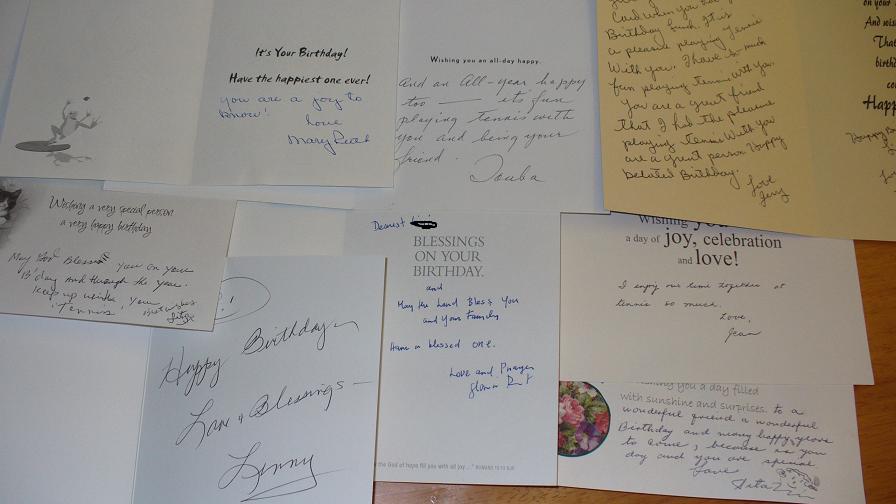 It's Your Birthday!
Have the happiest one ever!
you are a joy to
know!
Love
Wishing you an all-day happy.
And an All-year happy
too — it's fun
playing tennis with
you and being your
friend.
Touba
Card when you
Birthday lunch. It is
a pleasure playing Tennis
With you. I have so much
fun playing tennis with you.
You are a great friend
That I had the pleasure
playing tennis With you
are a great person Happy
Belated Birthday.
Love
Jerry
on your
And wis
That
birth
co
Happ
Wishing a very special person
a very happy birthday
May God Bless you on your
B'day and through the year.
Keep up with your
'Tennis'
Happy Birthday
Love & Blessings —
Lenny
Dearest
BLESSINGS
ON YOUR
BIRTHDAY.
and
May the Lord Bless You
and your Family
Have a blessed one.
Love and Prayer
the God of hope fill you with all joy..." ROMANS 15:13 NJB
Wishing you
a day of joy, celebration
and love!
I enjoy our time together at
tennis so much.
Love,
Jean
Wishing you a day filled
with sunshine and surprises. to a
wonderful friend a wonderful
Birthday and many happy years
to come, because is your
day and you are special
Love